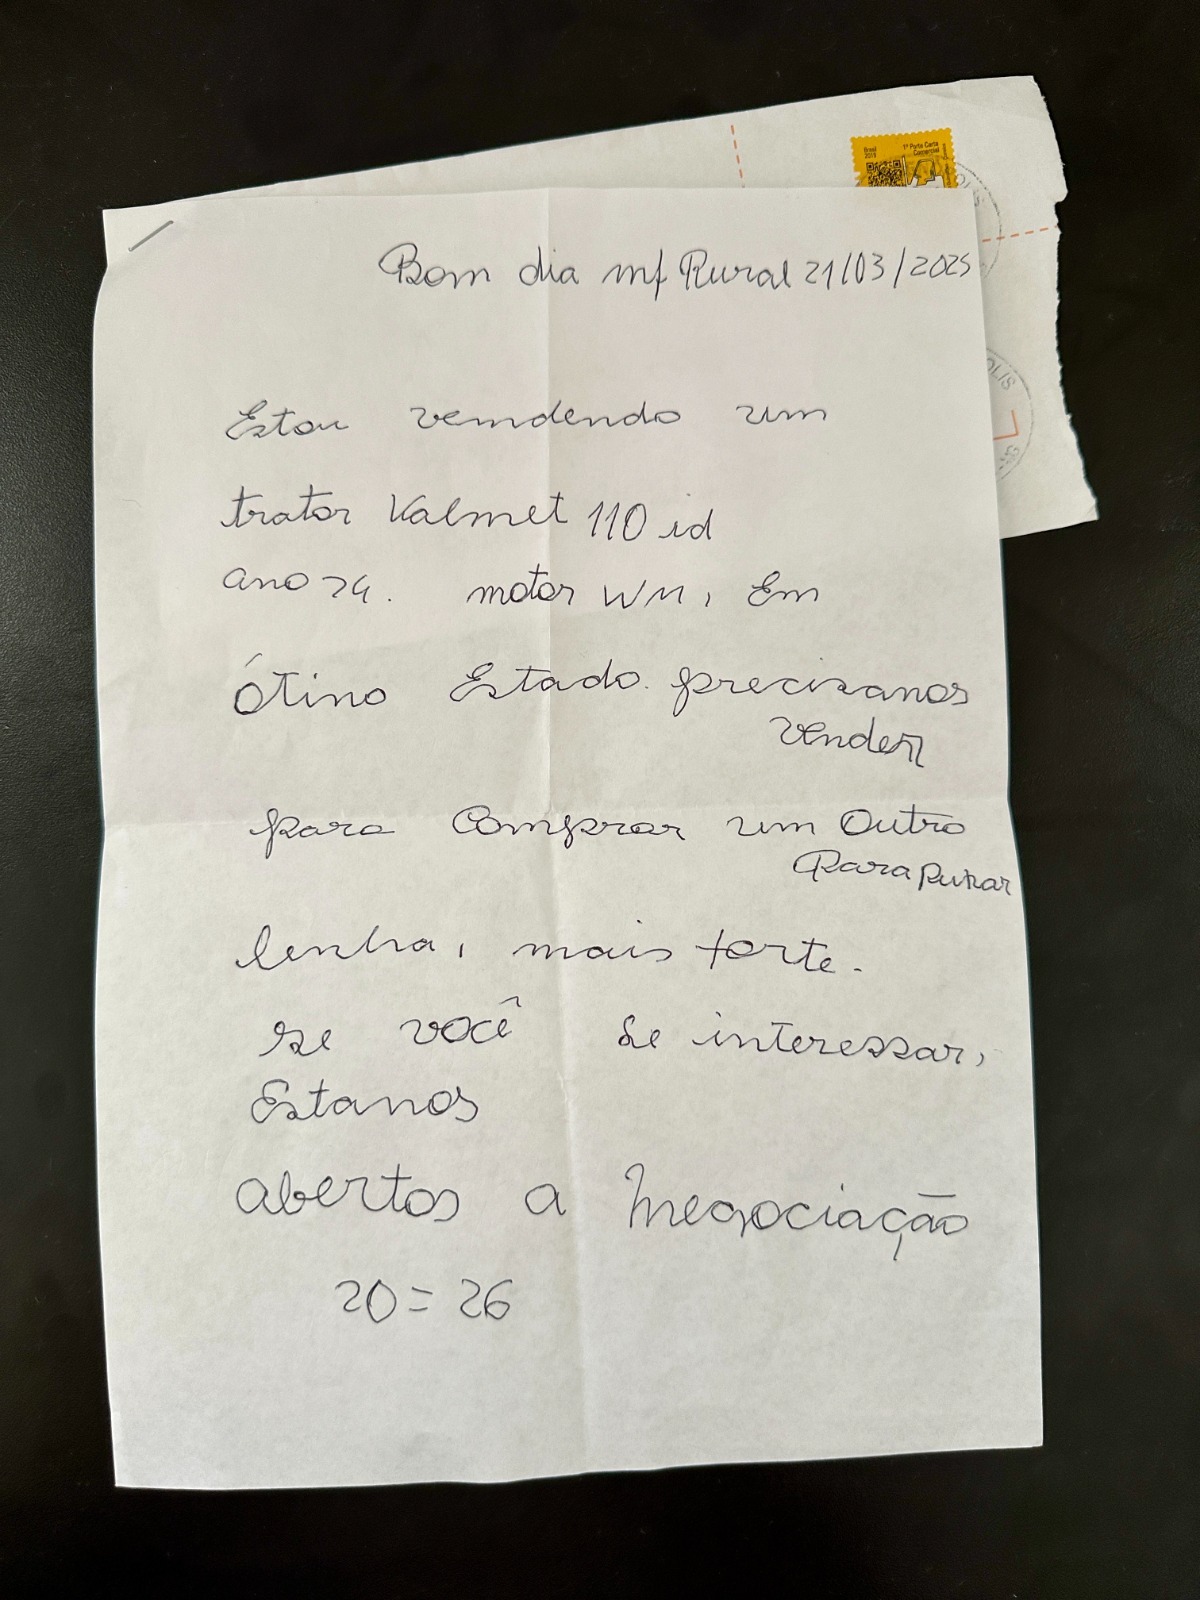 Brasil
2019
1º Porte Carta
Comercial
OLIS
OLIS
Bom dia mf Rural 21/03/2025
Estou vemdendo um
trator Valmet 110 id
ano 74. motor WM, Em
Ótino Estado. precisanos
vender
para comprar um Outro
Para Puxar
lenha, mais forte.
se você se interessar,
Estanos
abertos a negociação
20 = 26